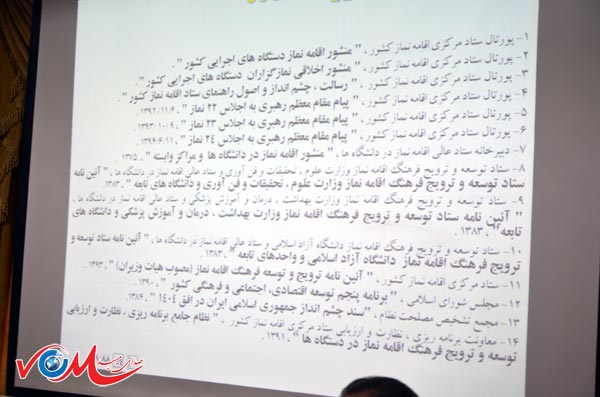 ۱- پورتال ستاد مرکزی اقامه نماز کشور، " منشور اقامه نماز دستگاه های اجرایی کشور ".
۲- پورتال ستاد مرکزی اقامه نماز کشور، " منشور اخلاقی نمازگزاران دستگاه های اجرایی کشور ".
۳- پورتال ستاد مرکزی اقامه نماز کشور، " رسالت، چشم انداز و اصول راهنمای ستاد اقامه نماز کشور ".
۴- پورتال ستاد مرکزی اقامه نماز کشور، " پیام مقام معظم رهبری به اجلاس ۲۲ نماز "، ۱۳۹۲/۱۱/۶.
۵- پورتال ستاد مرکزی اقامه نماز کشور، " پیام مقام معظم رهبری به اجلاس ۲۳ نماز "، ۱۳۹۳/۱۰/۹.
۶- پورتال ستاد مرکزی اقامه نماز کشور، " پیام مقام معظم رهبری به اجلاس ۲۴ نماز "، ۱۳۹۴/۶/۱۱.
۷- دبیرخانه ستاد عالی اقامه نماز در دانشگاه ها، " منشور اقامه نماز در دانشگاه ها و مراکز وابسته "، ۱۳۷۵.
۸- ستاد توسعه و ترویج فرهنگ اقامه نماز وزارت علوم، تحقیقات و فن آوری و ستاد عالی اقامه نماز در دانشگاه ها، " آئین نامه
ستاد توسعه و ترویج فرهنگ اقامه نماز وزارت علوم، تحقیقات و فن آوری و دانشگاه های تابعه "، ۱۳۸۳.
۹- ستاد توسعه و ترویج فرهنگ اقامه نماز وزارت بهداشت، درمان و آموزش پزشکی و ستاد عالی اقامه نماز در دانشگاه ها،
" آئین نامه ستاد توسعه و ترویج فرهنگ اقامه نماز وزارت بهداشت، درمان و آموزش پزشکی و دانشگاه های
تابعه "، ۱۳۸۳.
۱۰- ستاد توسعه و ترویج فرهنگ اقامه نماز دانشگاه آزاد اسلامی و ستاد عالی اقامه نماز در دانشگاه ها، " آئین نامه ستاد توسعه و
ترویج فرهنگ اقامه نماز دانشگاه آزاد اسلامی و واحدهای تابعه "، ۱۳۸۳.
۱۱- ستاد مرکزی اقامه نماز کشور، " آئین نامه ترویج و توسعه فرهنگ اقامه نماز (مصوب هیات وزیران) "، ۱۳۹۳.
۱۲- مجلس شورای اسلامی، " برنامه پنجم توسعه اقتصادی، اجتماعی و فرهنگی کشور "، ۱۳۹۰.
۱۳- مجمع تشخیص مصلحت نظام، "سند چشم انداز جمهوری اسلامی ایران در افق ۱۴۰۴ "، ۱۳۸۶.
۱۴- معاونت برنامه ریزی، نظارت و ارزیابی ستاد مرکزی اقامه نماز کشور، " نظام جامع برنامه ریزی، نظارت و ارزیابی
توسعه و ترویج فرهنگ اقامه نماز در دستگاه ها "، ۱۳۹۱.
VOM